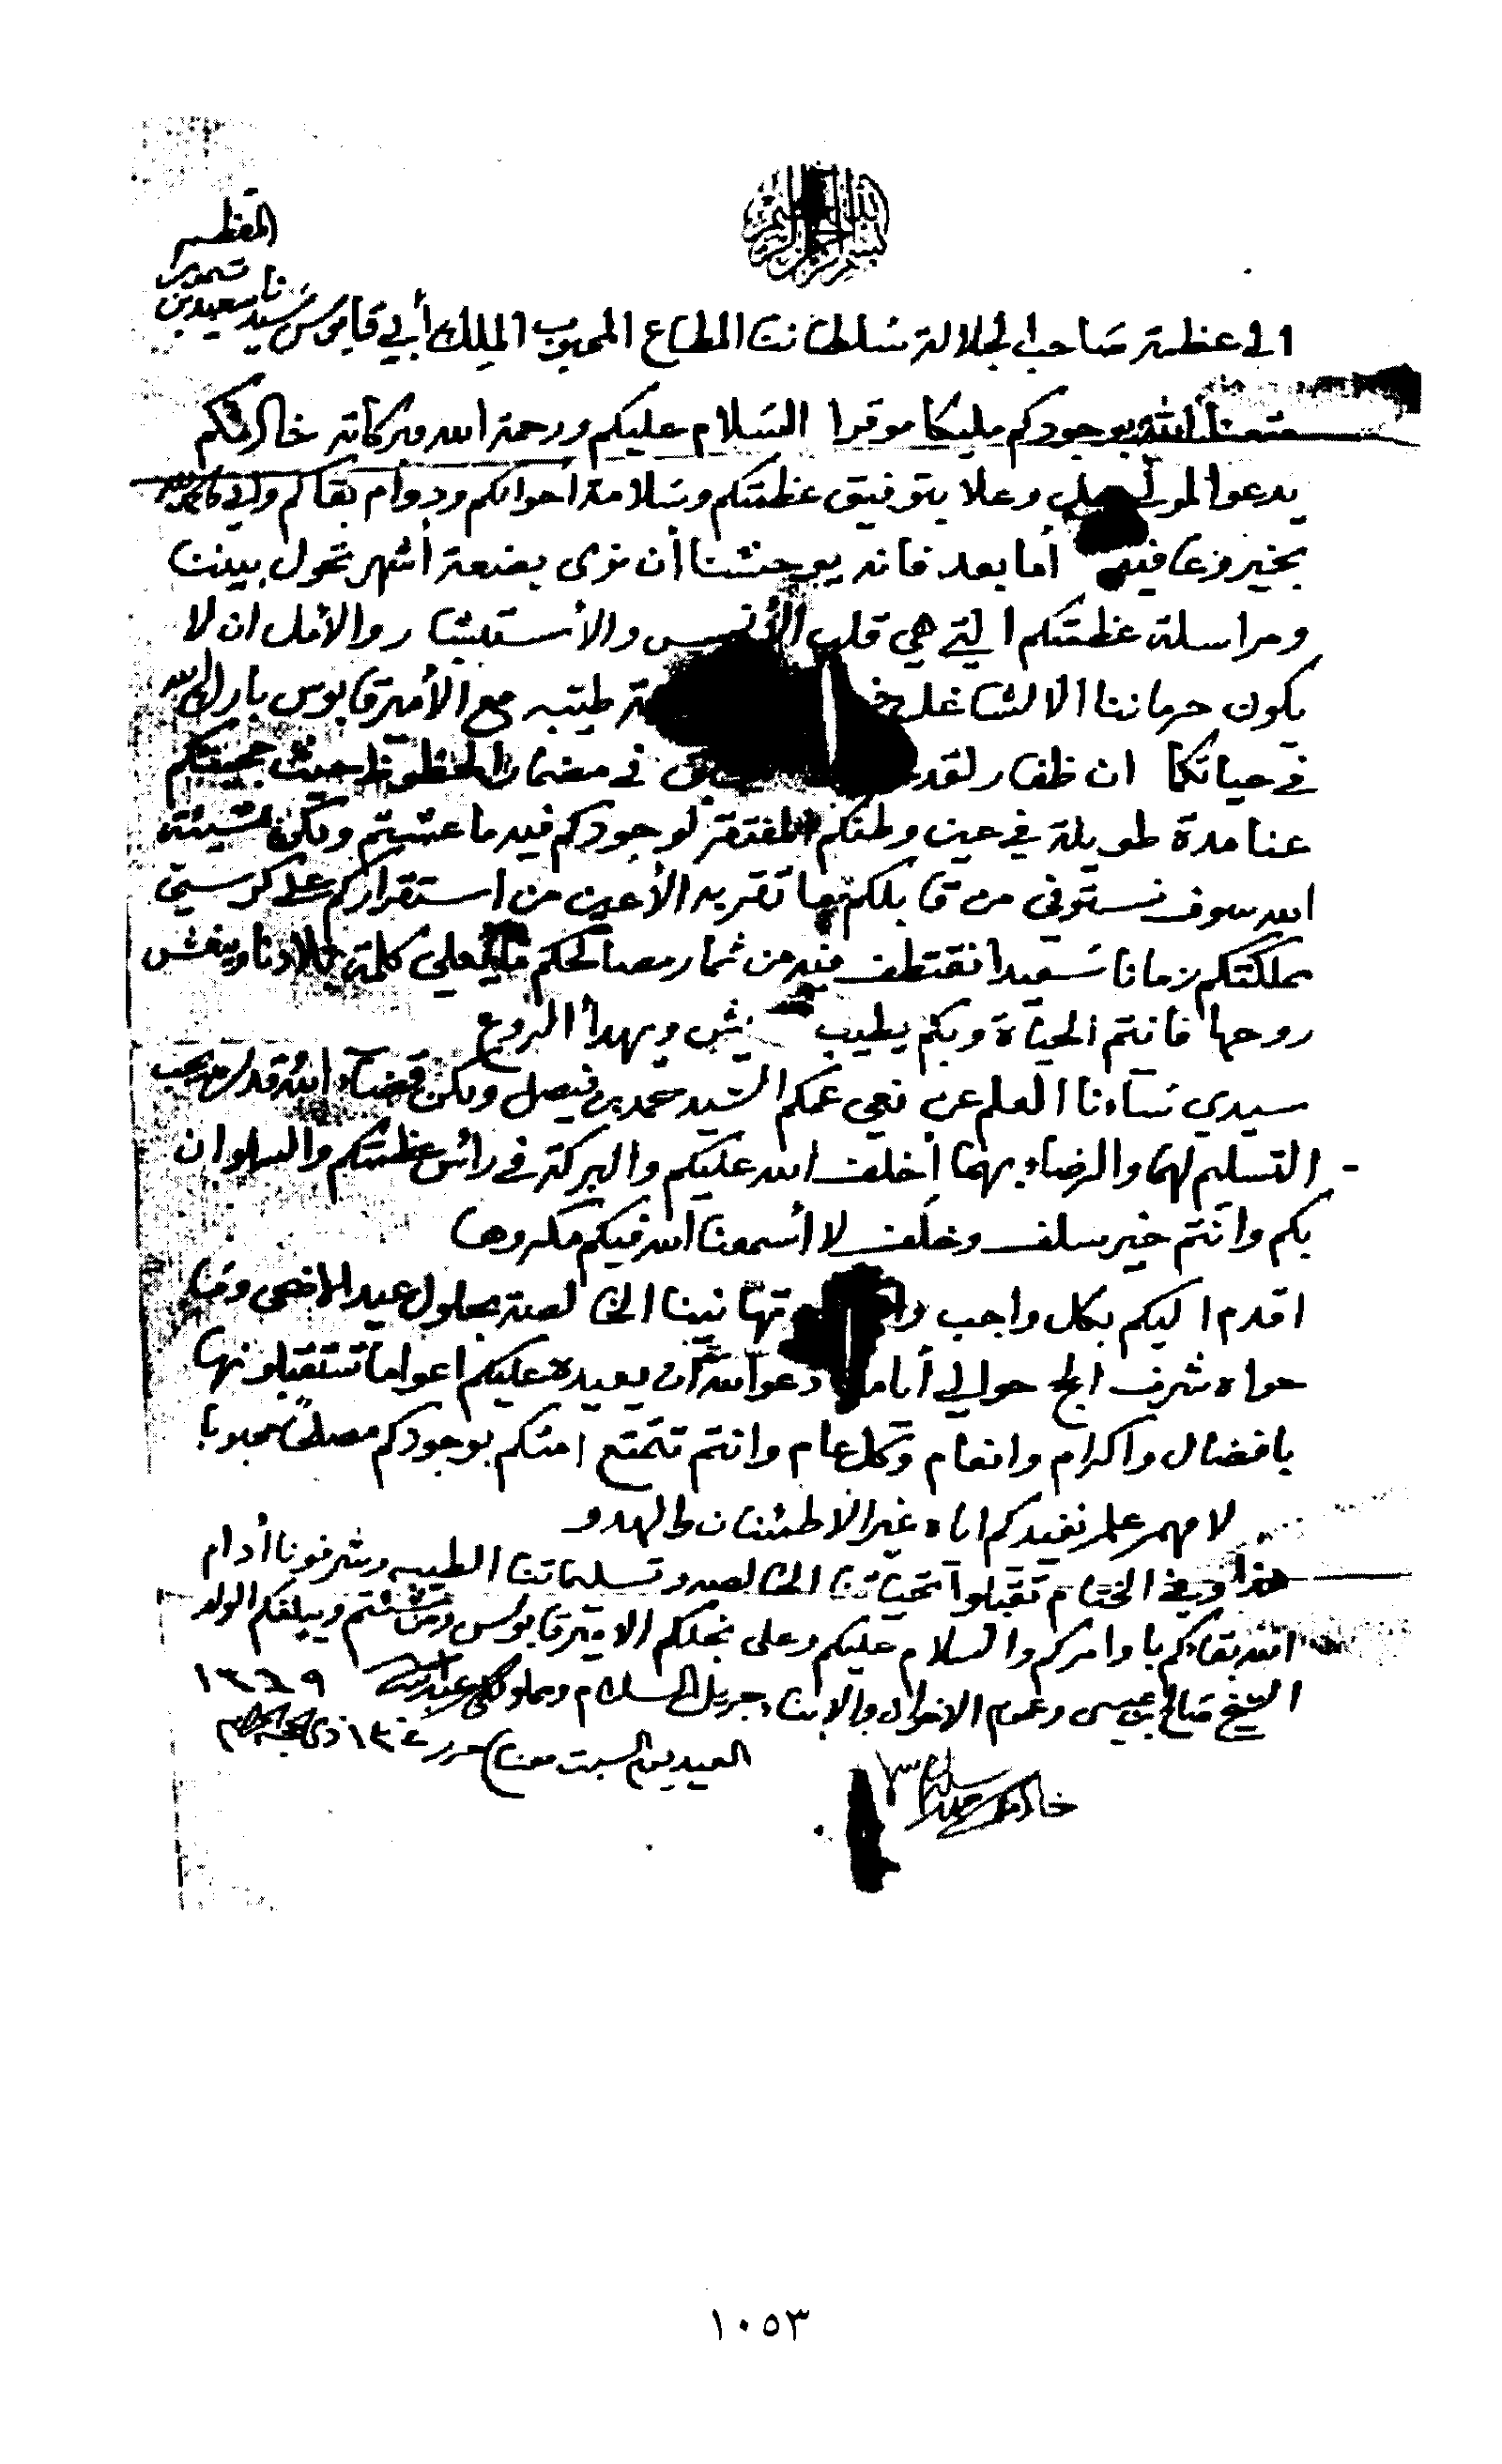 بسم الله الرحمن الرحيم
الى عظمة صاحب الجلالة سلطاننا المطاع المحبوب الملك أبي قابوس سيدنا سعيد بن تيمور المعظم
متعنا الله بوجودكم مليكا موقرا السلام عليكم ورحمة الله وبركاته خادمكم
يدعوا المولى جلى وعلا بتوفيق عظمتكم وسلامة أحوالكم ودوام بقاكم واني لله
بخير وعافيه أما بعد فانه يوحشنا أن نرى بضعة أشهر تحول بيننا
ومراسلة عظمتكم التي هي قلب الأنس والأستبشار والأمل ان لا
يكون حرماننا الا لشاغل طيبه مع الأمير قابوس بارك الله
في حياتكما ان ظفار لقد في مضمار الحظوظ حيث
عنا مدة طويلة في عين وطنكم المفتقر لوجودكم فيه ما عشتم ولكن بمشيئة
الله سوف نستوفي من قابلكم ما تقر به الأعين من استقراركم على كرسي
مملكتكم زمانا سعيدا نقتطف فيه من ثمار مصالحكم ما يعلي كلمة بلادنا وينعش
روحها فانتم الحياة وبكم يطيب ويهدأ الروع
سيدي ساءنا العلم عن نعي عمكم السيد محمد بن فيصل ولكن قضاء الله وقدره يجب
- التسليم لهما والرضاء بهما أخلف الله عليكم والبركة في رأس عظمتكم والسلوان
بكم وانتم خير سلف وخلف لا أسمعنا الله فيكم مكروها
اقدم اليكم بكل واجب تهانينا الخالصة بحلول عيد الاضحى وما
حواه شرف الحج حوالي أيامه ادعو الله أن يعيده عليكم اعواما تستقبلونها
بافضال واكرام وانعام وكل عام وانتم تتمتع امتكم بوجودكم مصلحا محبوبا
لا مهم علم نفيدكم اياه غير الاطمئنان والهدو
هذا وفي الختام تقبلوا تحياتنا الخالصه وتسليماتنا الطيبه وشرفونا أدام
الله بقاءكم باوامركم والسلام عليكم وعلى نجلكم الامير قابوس ومن شئتم ويبلغكم الولد
الشيخ صالح بن عيسى وعموم الاخوان والابناء جزيل السلام ومملوككم عبدالله ١٣٦٩
العيد يوم السبت معنا حرر ذي الحجة
خادمكم
١٠٥٣